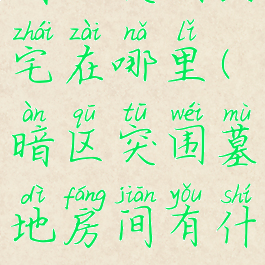 zhái zài nǎ lǐ
宅在哪里(
àn qū tū wéi mù
暗区突围墓
dì fáng jiān yǒu shí
地房间有什